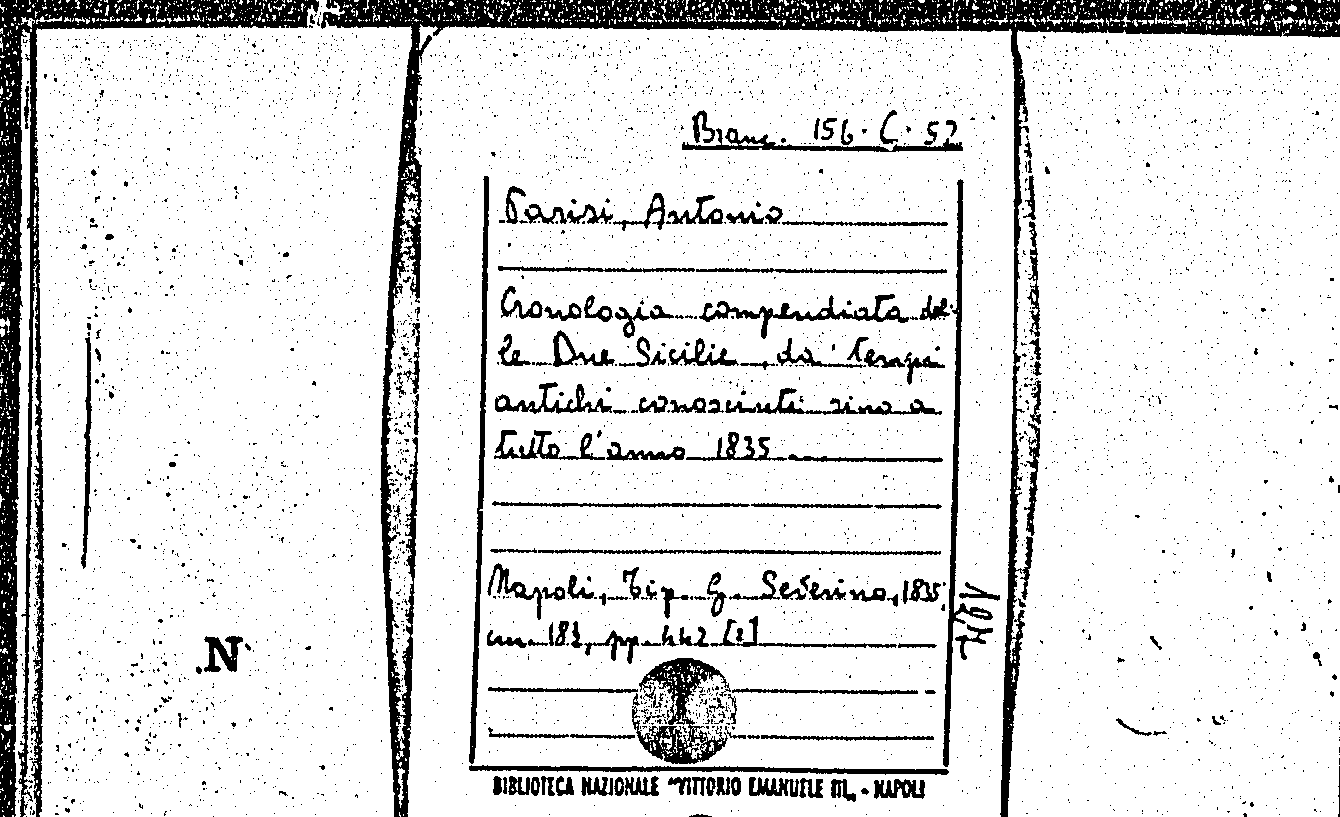 Branc. 156. C. 52
Parisi, Antonio
Cronologia compendiata del-
le Due Sicilie, da' tempi
antichi conosciuti sino a
tutto l'anno 1835 ...
Napoli, Tip. G. Severino, 1835,
cm. 18½, pp. 442 [2]
.N
BIBLIOTECA NAZIONALE "VITTORIO EMANUELE III„ - NAPOLI